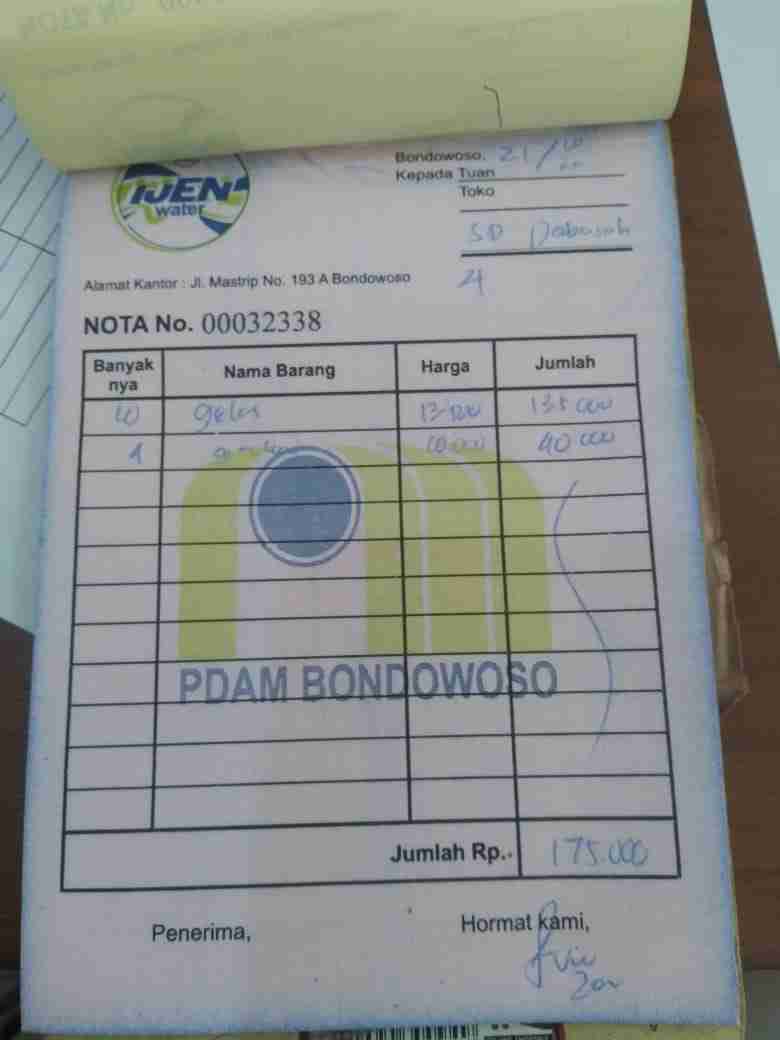 IJEN
water
Bondowoso, 21/
Kepada Tuan
Toko
SD Dabasah
4
Alamat Kantor : Jl. Mastrip No. 193 A Bondowoso
NOTA No. 00032338
Banyak nya Nama Barang Harga Jumlah
10 gelas 13.500 135.000
4 10.000 40.000
PDAM BONDOWOSO
Jumlah Rp. 175.000
Penerima, Hormat kami,